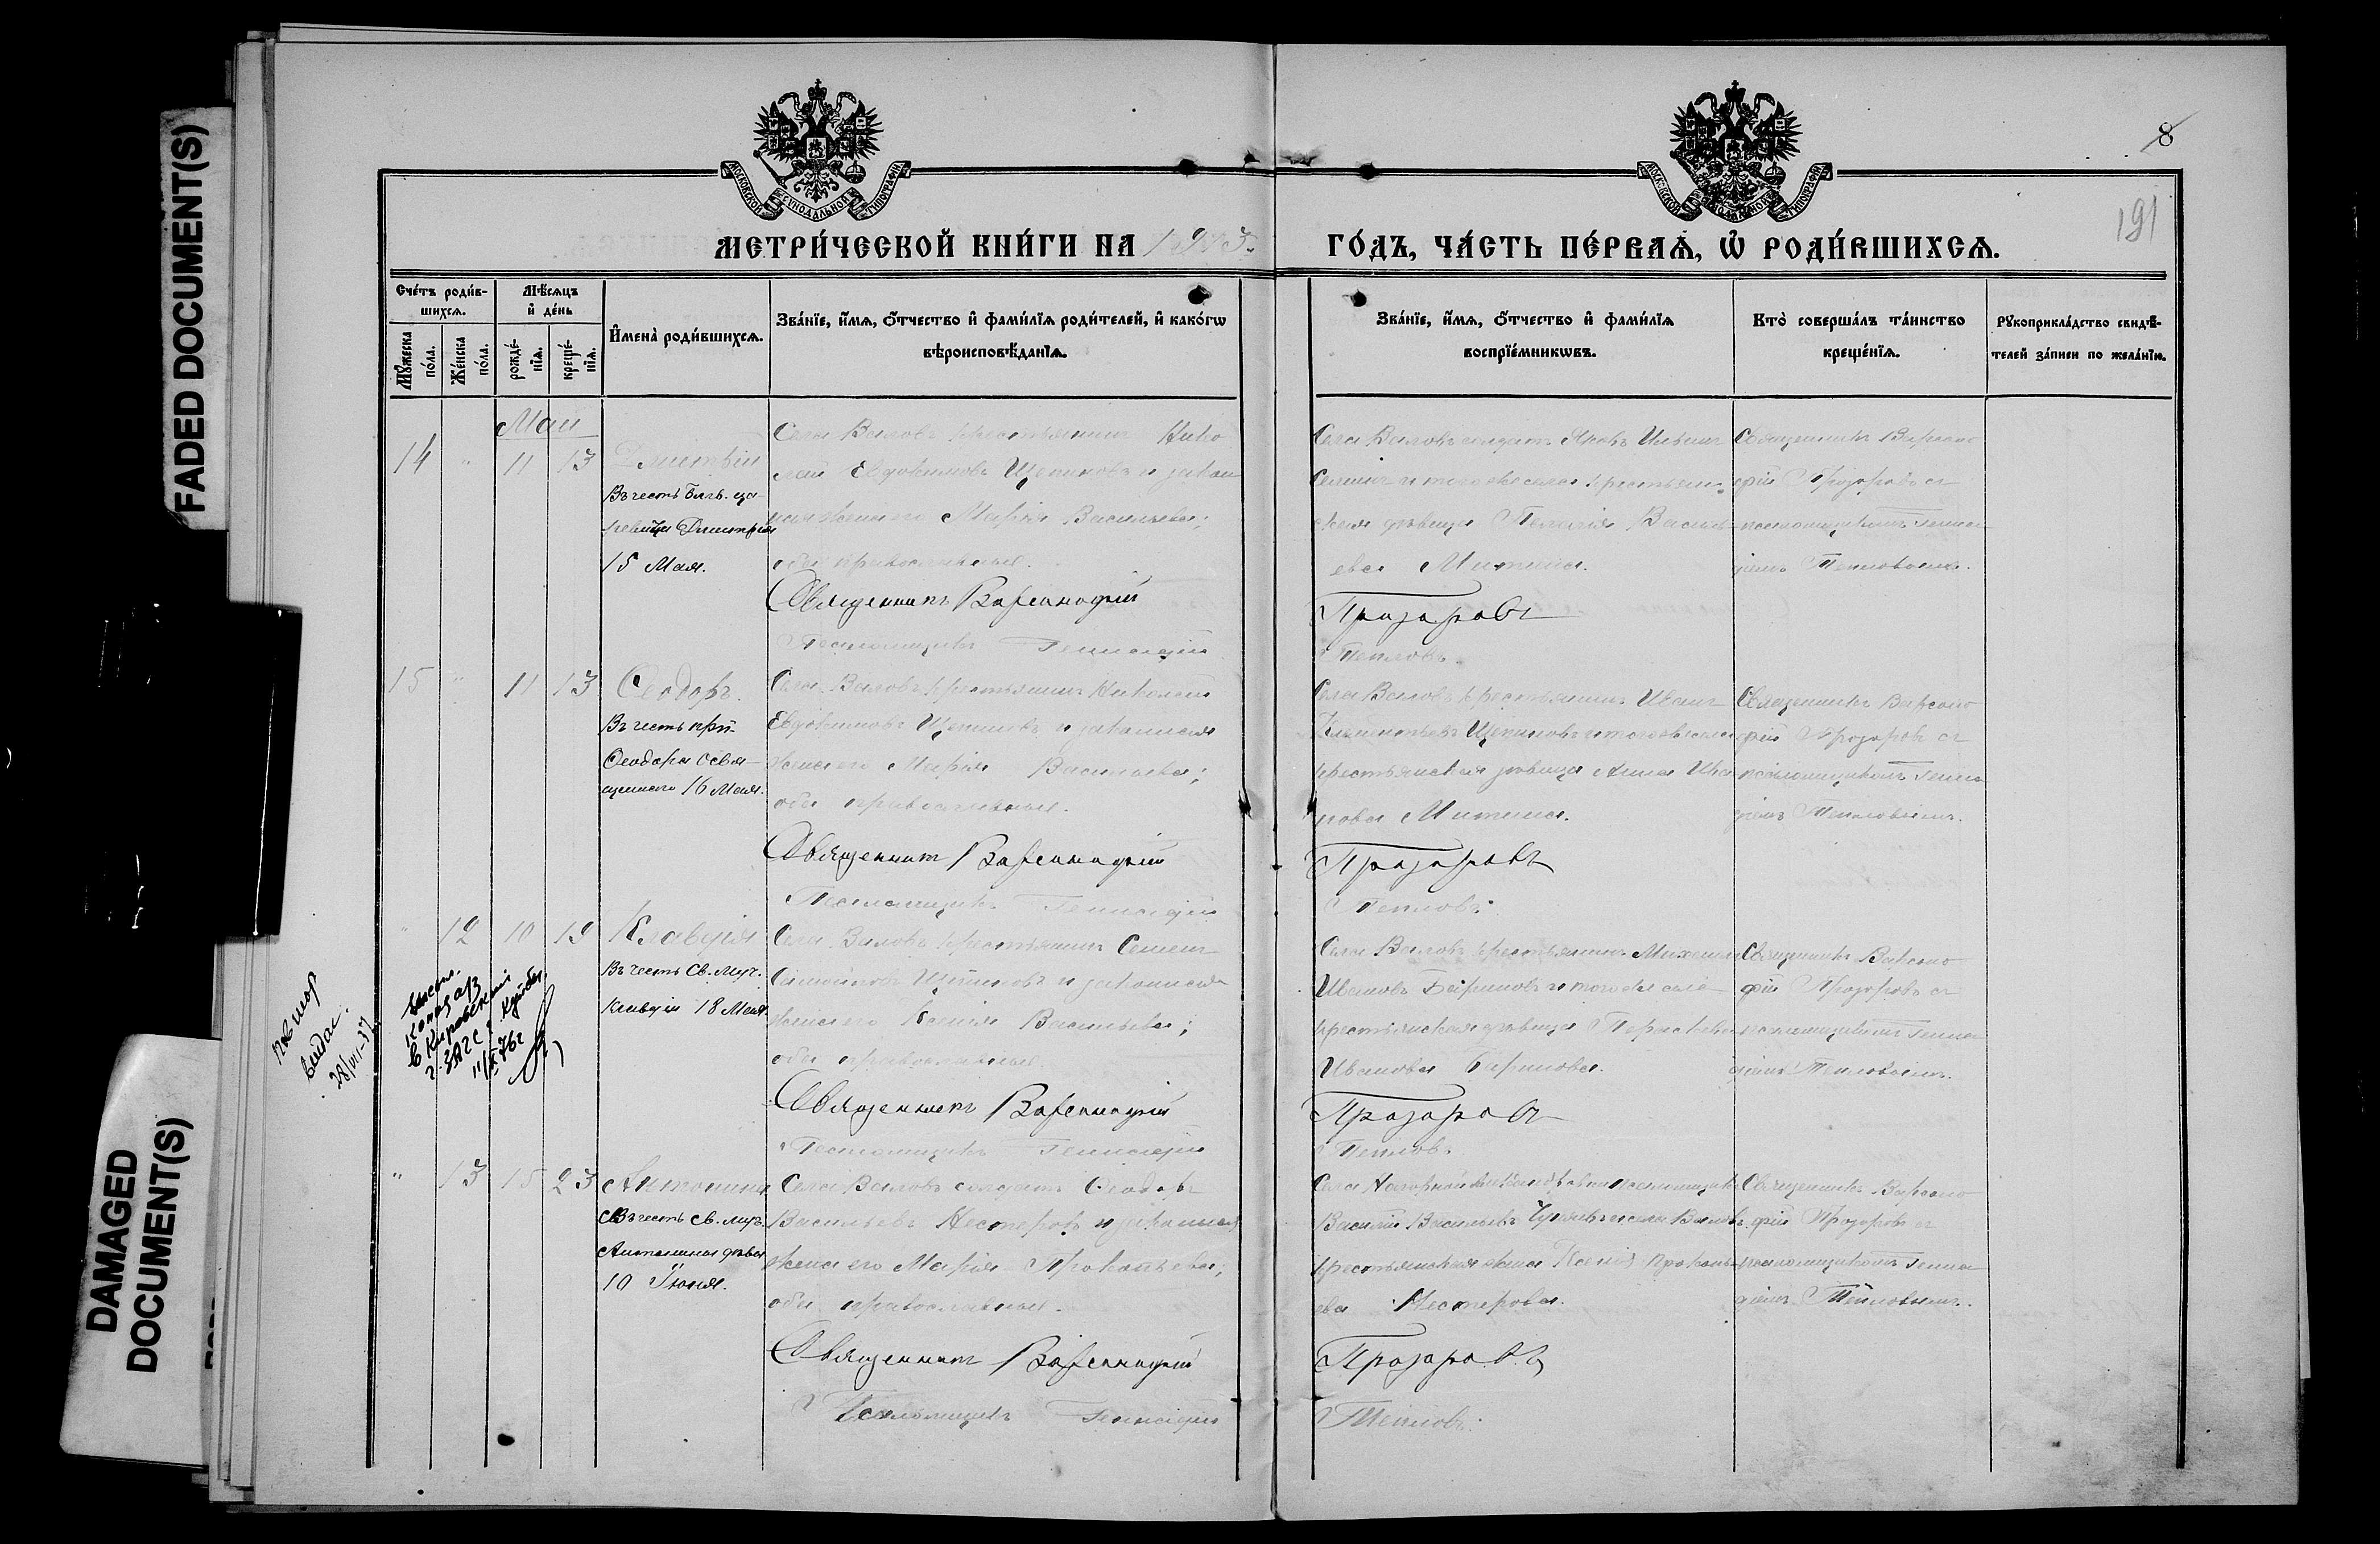 FADED DOCUMENT(S)
DAMAGED
DOCUMENT(S)
МОСКОВСКОЙ СѴНОДАЛЬНОЙ ТИПОГРАФІИ
МОСКОВСКОЙ СѴНОДАЛЬНОЙ ТИПОГРАФІИ
8
191
МЕТРИ́ЧЕСКОЙ КНИ́ГИ НА 1913
ГО́ДЪ, ЧА́СТЬ ПЕ́РВАѦ, Ѡ҆ РОДИ́ВШИХСѦ.
Сче́тъ роди́в-
шихсѧ.
Мꙋ́жеска
по́ла.
Же́нска
по́ла.
Мѣ́сѧцъ
и҆ де́нь
рожде́-
нїѧ.
креще́-
нїѧ.
И҆мена̀ роди́вшихсѧ.
Зва́нїе, и҆́мѧ, ѻ҆́тчество и҆ фами́лїѧ роди́телей, и҆ како́гѡ
вѣроисповѣ́данїѧ.
Зва́нїе, и҆́мѧ, ѻ҆́тчество и҆ фами́лїѧ
воспрїе́мникѡвъ.
Кто̀ соверша́лъ та́инство
креще́нїѧ.
Рꙋкоприкла́дство свидѣ́-
телей за́писи по жела́нїю.
Май
14 " 11 13 Димитрій
Въ честь блгв. ца-
ревича Димитрія
15 Мая.
Села Валовъ крестьянинъ Нико
лай Евдокимовъ Щепиновъ и закон
ная жена его Марія Васильева;
оба православные.
Священникъ Варсанофій
Псаломщикъ Геннадій
Села Валовъ солдатъ Яковъ Ильинъ
и того же села крестьян-
ская дѣвица Пелагія Василь-
ева Митина.
Прозоровъ
Тепловъ.
Священникъ Варсано
фій Прозоровъ съ
псаломщикомъ Генна
діемъ Тепловымъ.
15 " 11 13 Ѳеодоръ.
Въ честь прп.
Ѳеодора Освя-
щеннаго 16 Мая.
Села Валовъ крестьянинъ Николай
Евдокимовъ Щепиновъ и законная
жена его Марія Васильева;
оба православные.
Священникъ Варсанофій
Псаломщикъ Геннадій
Села Валовъ крестьянинъ Иванъ
Климентьевъ Щепиновъ и того же села
крестьянская дѣвица Анна Ива
нова Митина.
Прозоровъ
Тепловъ.
Священникъ Варсано
фій Прозоровъ съ
псаломщикомъ Генна
діемъ Тепловымъ.
" 12 10 19 Клавдія
Въ честь Св. Муч.
Клавдіи 18 Мая.
Села Валовъ крестьянинъ Семенъ
Щепиновъ и законная
жена его Ксенія Васильева;
оба православные.
Священникъ Варсанофій
Псаломщикъ Геннадій
Села Валовъ крестьянинъ Михаилъ
Ивановъ Бариновъ и того же села
крестьянская дѣвица Параскева
Иванова Баринова.
Прозоровъ
Тепловъ.
Священникъ Варсано
фій Прозоровъ съ
псаломщикомъ Генна
діемъ Тепловымъ.
повтор
выдас.
28/VII-37
в Кировский
ЗАГС г. Куйбыш
76г
" 13 15 23 Антонина
Въ честь св. муч.
Антонины дѣвы
10 Іюня.
Села Валовъ солдатъ Ѳеодоръ
Васильевъ Нестеровъ и законная
жена его Марія Прокопьева;
оба православные.
Священникъ Варсанофій
Псаломщикъ Геннадій
Села псаломщикъ
Василій Васильевъ и села Валовъ
крестьянская жена Ксенія Прокопь-
ева Нестерова.
Прозоровъ
Тепловъ.
Священникъ Варсано
фій Прозоровъ съ
псаломщикомъ Генна
діемъ Тепловымъ.